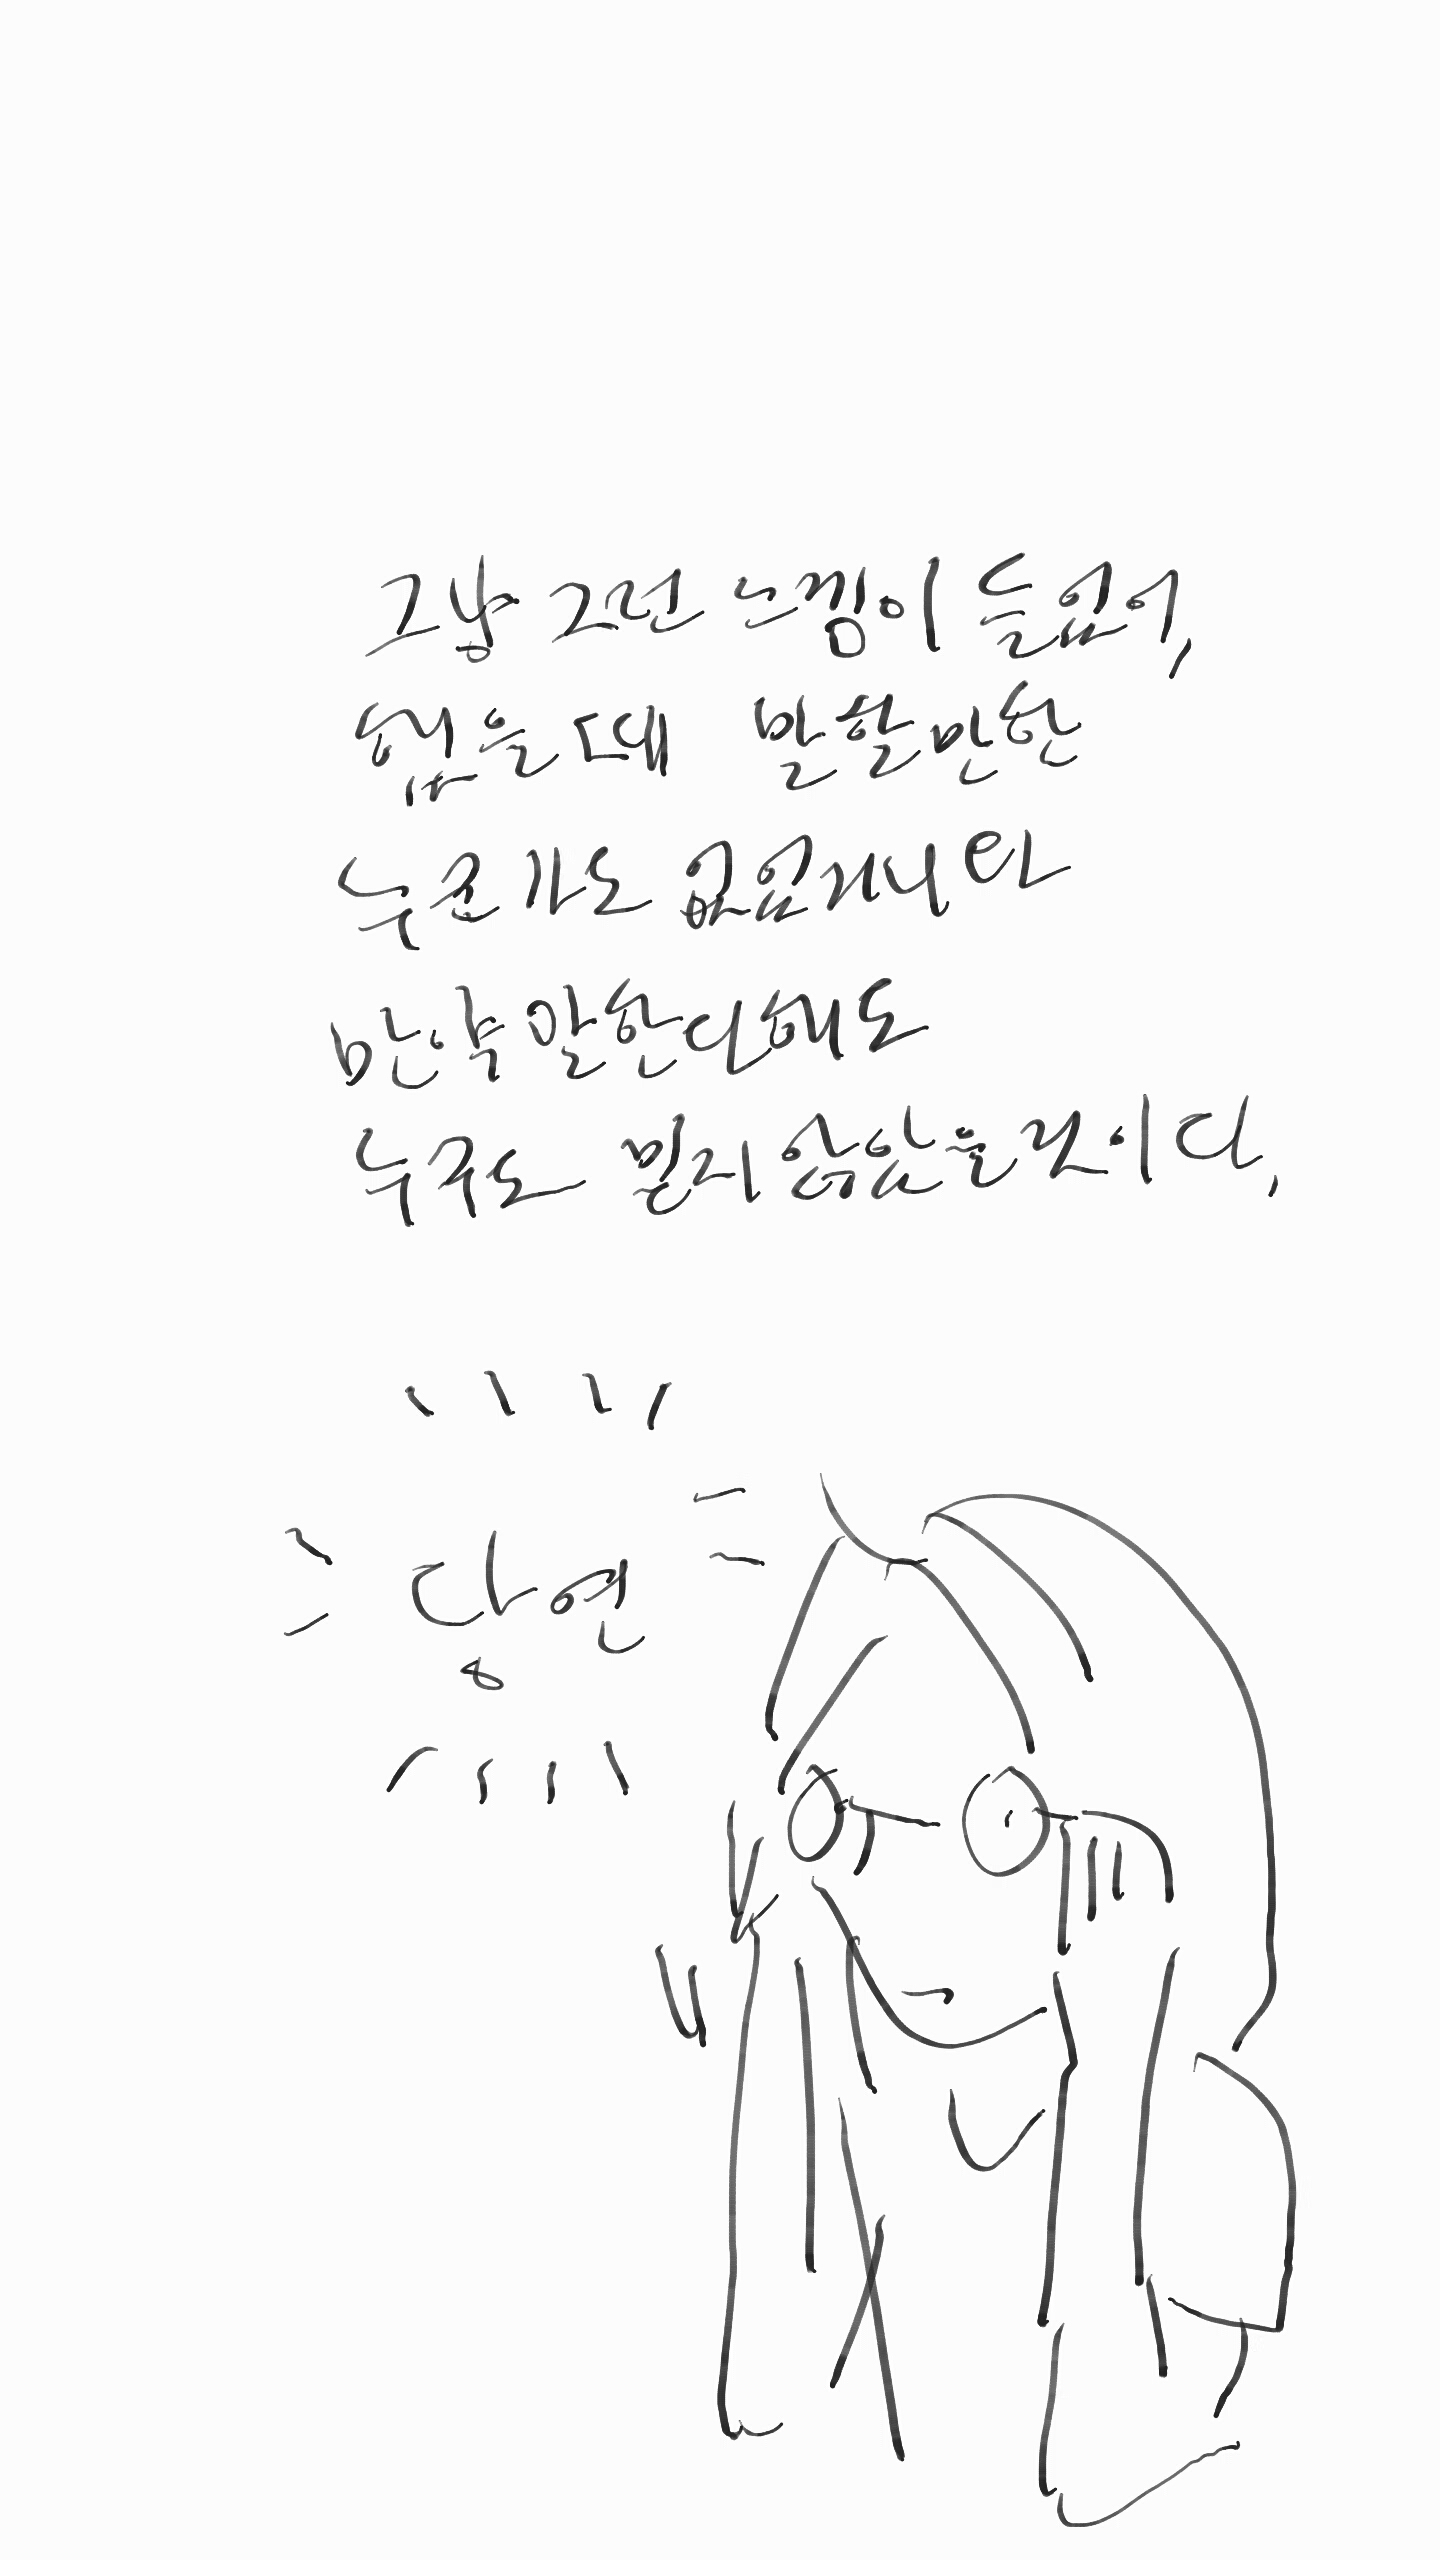 그냥 그런 느낌이 들었어,
힘들때 말할만한
누군가도 없었거니와
만약 말한다해도
누구도 믿지 않았을것이다,
당연